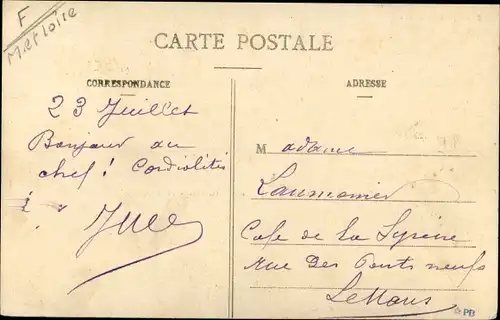 F
M et Loire
CARTE POSTALE
CORRESPONDANCE
ADRESSE
23 Juillet
Bonjour au
chef! Cordialités
Madame
Laumonier
Cafe de la Syrène
rue des Ponts neufs
Le Mans
PD